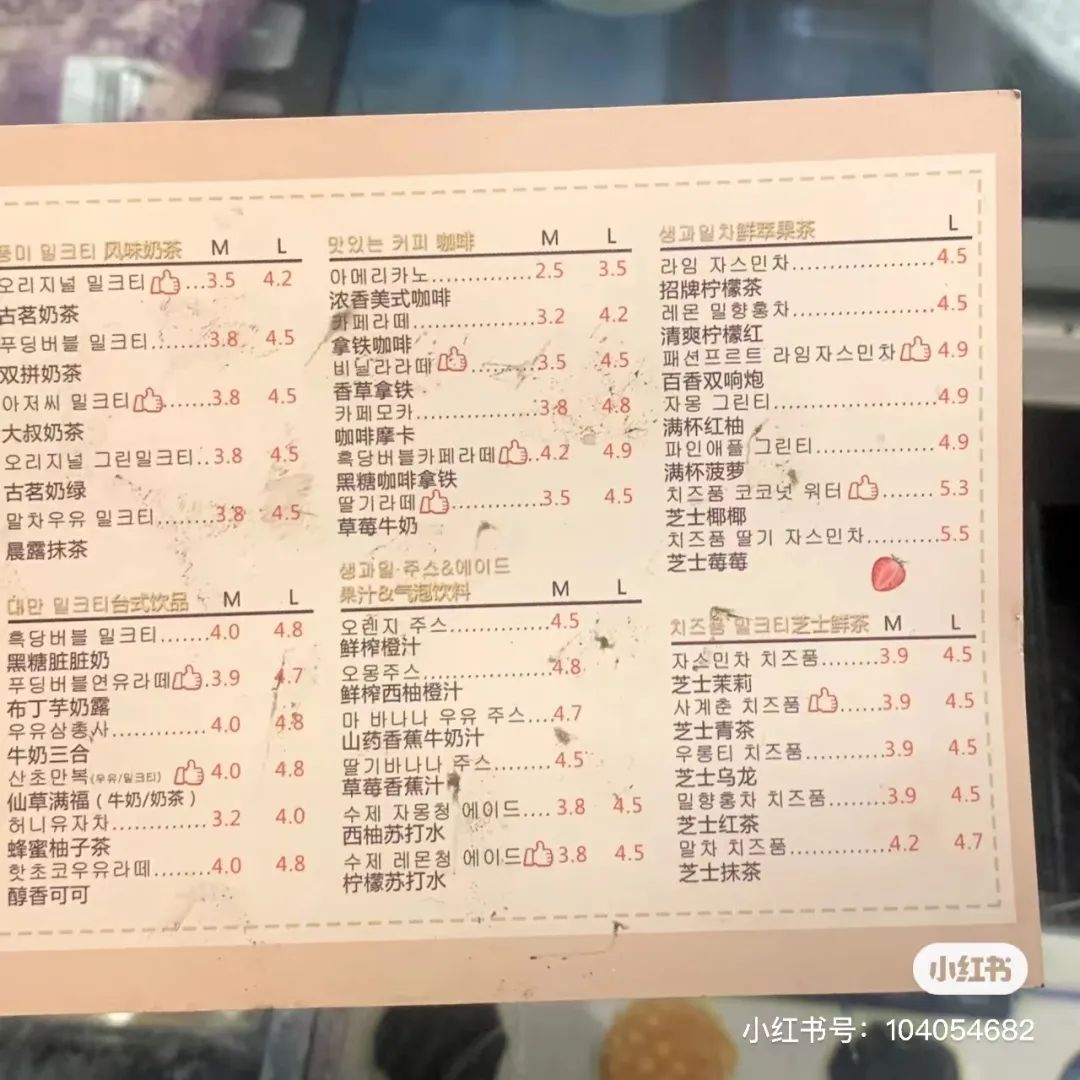 풍미 밀크티 风味奶茶 M L
오리지널 밀크티 ...3.5 4.2
古茗奶茶
푸딩버블 밀크티.......3.8 4.5
双拼奶茶
아저씨 밀크티.......3.8 4.5
大叔奶茶
오리지널 그린밀크티..3.8 4.5
古茗奶绿
말차우유 밀크티........3.8 4.5
晨露抹茶
대만 밀크티台式饮品 M L
흑당버블 밀크티.......4.0 4.8
黑糖脏脏奶
푸딩버블연유라떼.3.9 4.7
布丁芋奶露
우유삼총사............4.0 4.8
牛奶三合
산초만복(우유/밀크티) 4.0 4.8
仙草满福 ( 牛奶/奶茶 )
허니유자차............3.2 4.0
蜂蜜柚子茶
핫초코우유라떼........4.0 4.8
醇香可可
맛있는 커피 咖啡 M L
아메리카노.............2.5 3.5
浓香美式咖啡
카페라떼...............3.2 4.2
拿铁咖啡
비닐라라떼...........3.5 4.5
香草拿铁
카페모카...............3.8 4.8
咖啡摩卡
흑당버블카페라떼..4.2 4.9
黑糖咖啡拿铁
딸기라떼...........3.5 4.5
草莓牛奶
생과일·주스&에이드
果汁&气泡饮料 M L
오렌지 주스............4.5
鲜榨橙汁
오몽주스...............4.8
鲜榨西柚橙汁
마 바나나 우유 주스....4.7
山药香蕉牛奶汁
딸기바나나 주스........4.5
草莓香蕉汁
수제 자몽청 에이드....3.8 4.5
西柚苏打水
수제 레몬청 에이드3.8 4.5
柠檬苏打水
생과일차鲜苹果茶 L
라임 자스민차.................4.5
招牌柠檬茶
레몬 밀향홍차.................4.5
清爽柠檬红
패션프르트 라임자스민차 4.9
百香双响炮
자몽 그린티...................4.9
满杯红柚
파인애플 그린티...............4.9
满杯菠萝
치즈폼 코코넛 워터.......5.3
芝士椰椰
치즈폼 딸기 자스민차..........5.5
芝士莓莓
치즈폼 밀크티芝士鲜茶 M L
자스민차 치즈폼........3.9 4.5
芝士茉莉
사계춘 치즈폼......3.9 4.5
芝士青茶
우롱티 치즈폼..........3.9 4.5
芝士乌龙
밀향홍차 치즈폼........3.9 4.5
芝士红茶
말차 치즈폼............4.2 4.7
芝士抹茶
小红书
小红书号：104054682